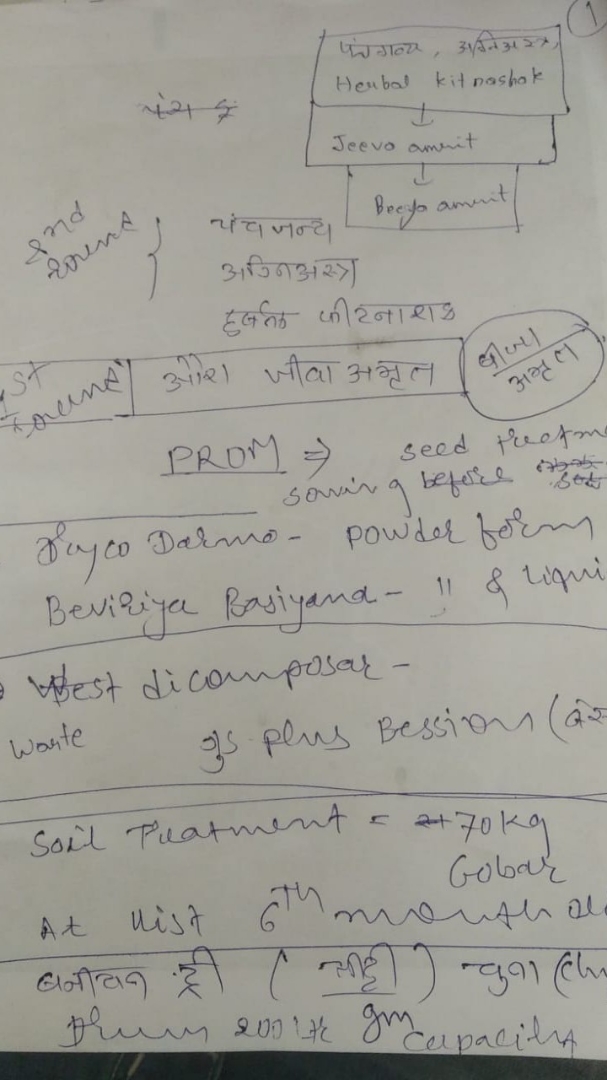 1
पंचगव्य, अग्निअस्त्र,
Herbal kitnashak
Jeeva amrit
Beeja amrit
पंच
2nd round
पंचजन्य
अग्निअस्त्रा
हर्बल कीटनाशक
1st round
और जीवा अमृत
बीजा अमृत
PROM ⇒ seed treatm
sowing before
Dryco Darma - powder form
Beviriya Basiyana - 11 & liqui
West dicomposar -
Waste गुड plus Bession (बेस
Soil Treatment = 70 kg
Gobar
At list 6TH month
( मिट्टी ) चुना (Chu
Drum 200 gm capacity